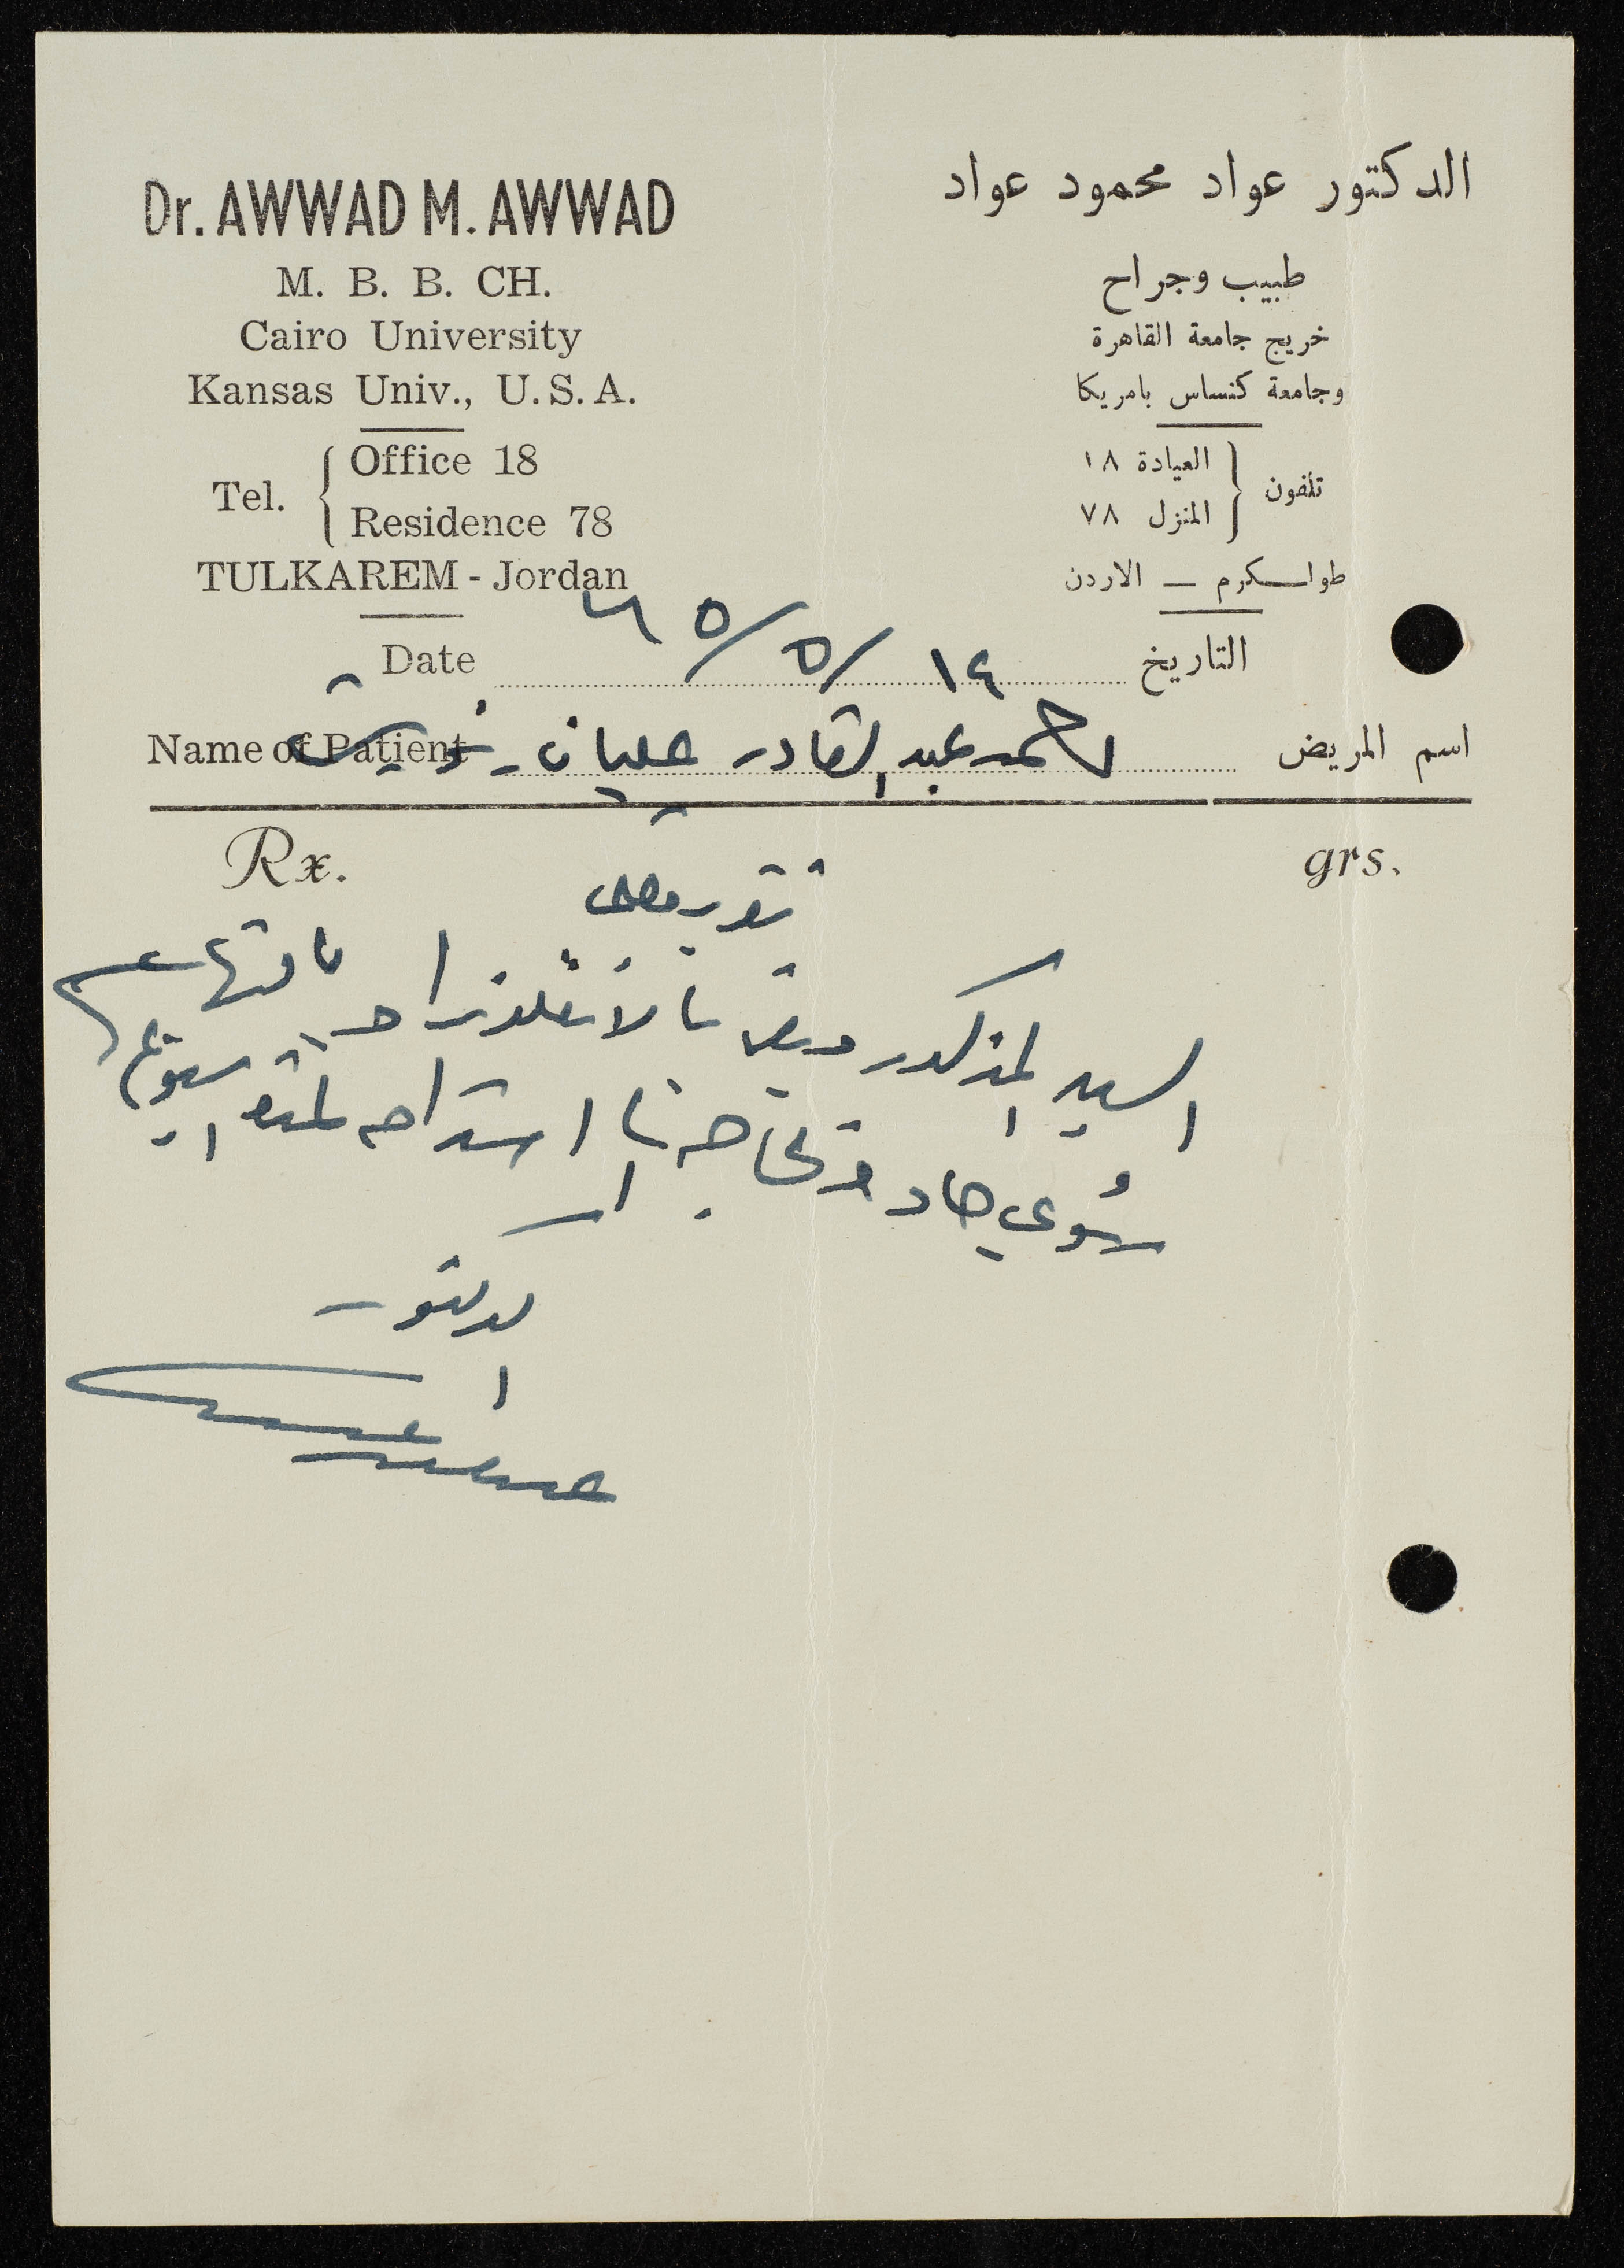 Dr. AWWAD M. AWWAD
M. B. B. CH.
Cairo University
Kansas Univ., U.S.A.
Tel. { Office 18
Residence 78
TULKAREM - Jordan
الدكتور عواد محمود عواد
طبيب وجراح
خريج جامعة القاهرة
وجامعة كنساس بامريكا
تلفون { العيادة ١٨
المنزل ٧٨
طولكرم — الاردن
Date ١٤/٥/٦٥ التاريخ
Name of Patient احمد عبد القادر عليان اسم المريض
Rx. grs.
تقرير طبي
السيد المذكور مريض بالانفلونزا بالتهاب
رئوي حاد وبحاجة الى استراحه لمدة اسبوع
الدكتور